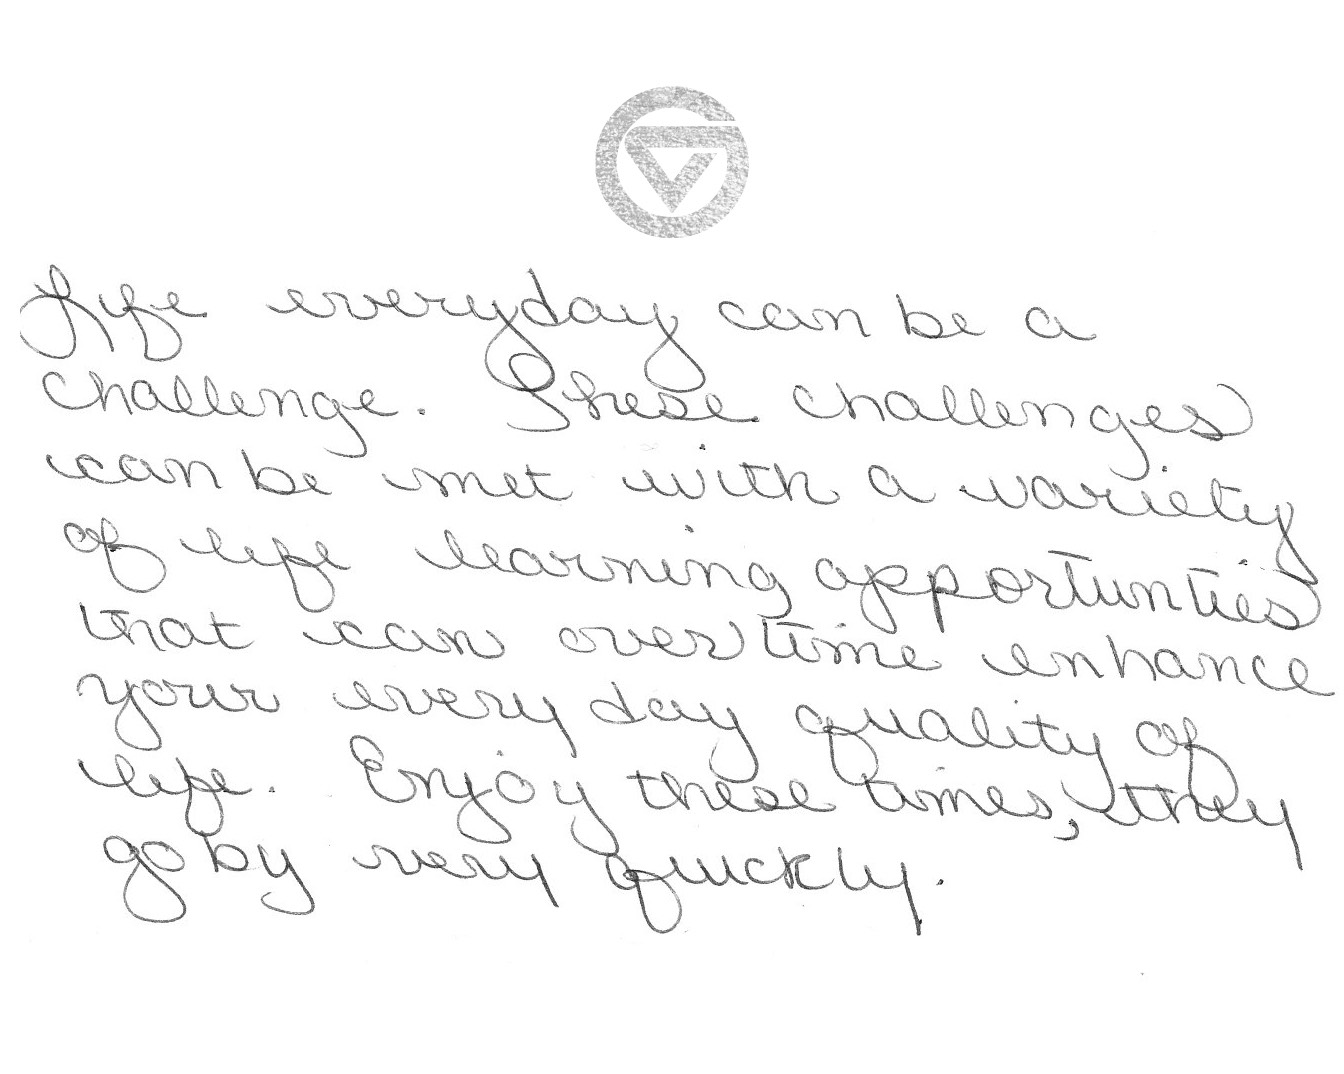 Life everyday can be a
challenge. These challenges
can be met with a variety
of life learning opportunties
that can over time enhance
your every day quality of
life. Enjoy these times, they
go by very quickly.